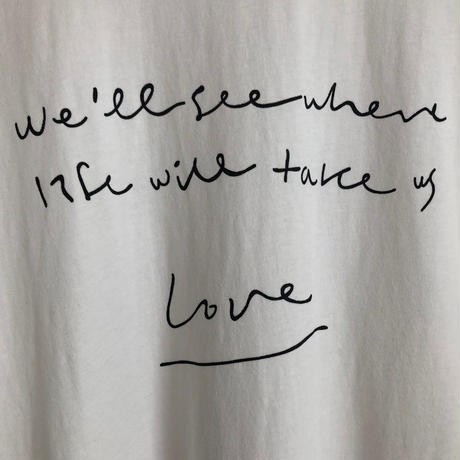 we'll see where
life will take us
Love